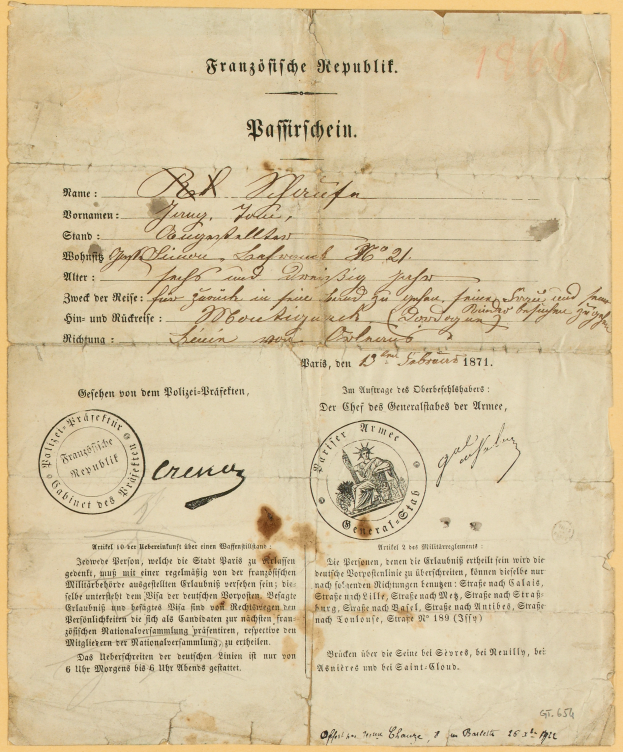 1868
Französische Republik.
Passirschein.
Name: Schaufe
Vornamen:
Stand: Angestellter
Wohnsitz Simon Lefranck No 21.
Alter: sechs und dreißig jahr
Zweck der Reise: für zurück in sein land zu gehen, seine Frau und seine
Kinder besuchen zu gehen
Hin- und Rückreise: Montignack (Dordogne)
Richtung: Linie von Orleans
Paris, den 13ten Februar 1871.
Gesehen von dem Polizei-Präfekten,
Im Auftrage des Oberbefehlshabers:
Der Chef des Generalstabes der Armee,
Polizei-Präfektur
Französische
Republik
Cabinet des Präfekten
Pariser Armee
General-Stab
Artikel 10 der Uebereinkunft über einen Waffenstillstand:
Jedwede Person, welche die Stadt Paris zu verlassen
gedenkt, muß mit einer regelmäßig von der französischen
Militärbehörde ausgestellten Erlaubniß versehen sein; die-
selbe untersteht dem Visa der deutschen Vorposten. Besagte
Erlaubniß und besagtes Visa sind von Rechtswegen den
Persönlichkeiten die sich als Candidaten zur nächsten fran-
zösischen Nationalversammlung präsentiren, respective den
Mitgliedern der Nationalversammlung, zu ertheilen.
Das Ueberschreiten der deutschen Linien ist nur von
6 Uhr Morgens bis 6 Uhr Abends gestattet.
Artikel 2 des Militärreglements:
Die Personen, denen die Erlaubniß ertheilt sein wird die
deutsche Vorpostenlinie zu überschreiten, können dieselbe nur
nach folgenden Richtungen benutzen: Straße nach Calais,
Straße nach Lille, Straße nach Metz, Straße nach Straß-
burg, Straße nach Basel, Straße nach Antibes, Straße
nach Toulouse, Straße No 189 (Issy)
Brücken über die Seine bei Sèvres, bei Neuilly, bei
Asnières und bei Saint-Cloud.
GT. 654
Offert par 25 1922